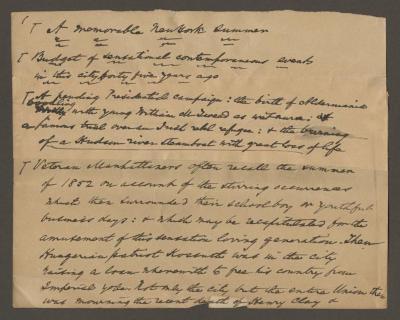 A memorable New York Summer
Budget of sensational contemporaneous events
in this city forty five years ago
A pending Presidential campaign: the birth of Aldermanic
boodling with young William M. Tweed as its nurse: A
famous duel over an Irish rebel refugee: & the burning
of a Hudson river Steamboat with great loss of life
Veteran Manhattanese often recall the summer
of 1852 on account of the stirring occurrences
which then surrounded their schoolboy or youthful
business days: & which may be recapitulated for the
amusement of this sensation loving generation. Then
Hungarian patriot Kossuth was in the city
raising a loan wherewith to free his country from
Imperial yoke. Not only the city but the entire Union then
was mourning the recent death of Henry Clay &